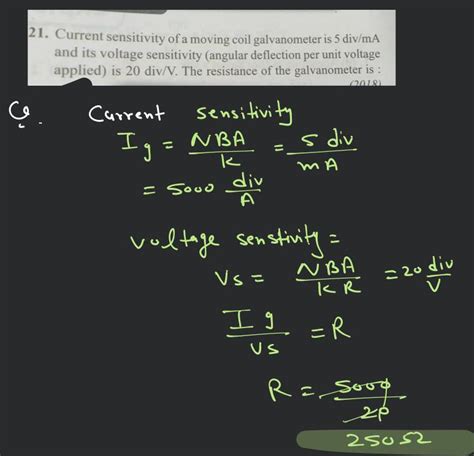 21. Current sensitivity of a moving coil galvanometer is 5 div/mA
and its voltage sensitivity (angular deflection per unit voltage
applied) is 20 div/V. The resistance of the galvanometer is :
(2018)
Current sensitivity
Ig = NBA/K = 5 div/mA
= 5000 div/A
voltage senstivity =
Vs = NBA/KR = 20 div/V
Ig/Vs = R
R = 5000/20
250Ω